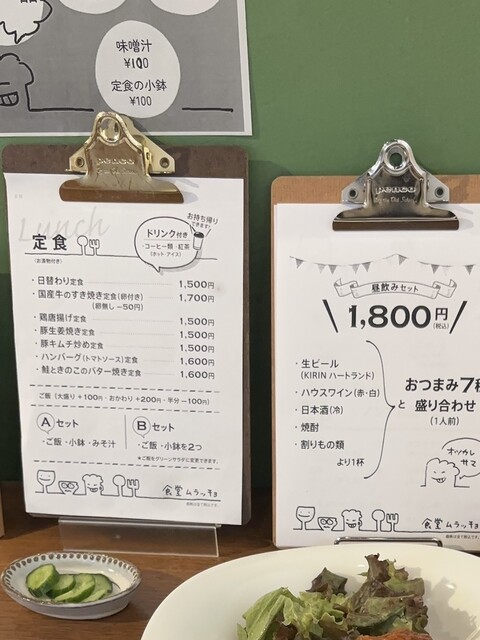 味噌汁
¥100
定食の小鉢
¥100
penco
Lunch
定食
(お漬物付き)
お持ち帰り
できます!
ドリンク付き
・コーヒー類・紅茶
(ホット・アイス)
・日替わり定食 1,500円
・国産牛のすき焼き定食(卵付き) 1,700円
(卵無し−50円)
・鶏唐揚げ定食 1,500円
・豚生姜焼き定食 1,500円
・豚キムチ炒め定食 1,500円
・ハンバーグ(トマトソース)定食 1,600円
・鮭ときのこのバター焼き定食 1,600円
ご飯(大盛り+100円・おかわり+200円・半分−100円)
Aセット
・ご飯・小鉢・みそ汁
Bセット
・ご飯・小鉢を2つ
*ご飯をグリーンサラダに変更できます。
食堂ムラッチョ
価格は全て税込です。
penco
昼飲みセット
1,800円
(税込)
・生ビール
(KIRIN ハートランド)
・ハウスワイン(赤・白)
・日本酒(冷)
・焼酎
・割りもの類
より1杯
と
おつまみ7種
盛り合わせ
(1人前)
オツカレ
サマ
食堂ムラッチョ